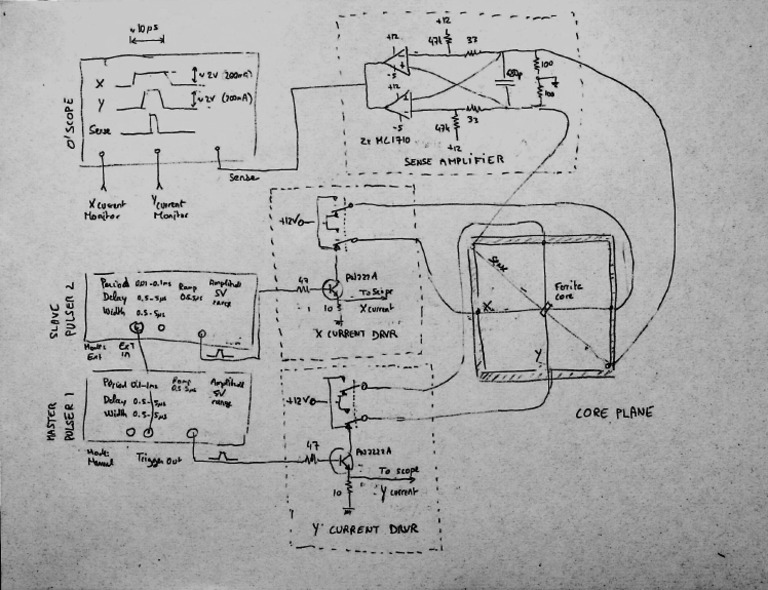 ~10μs
X
~2V (200mA)
Y
~2V (200mA)
Sense
O'SCOPE
X current
Monitor
Y current
Monitor
Sense
+12
47k
33
+12
-5
100
100
+12
-5
33
47k
+12
2x MC1710
SENSE AMPLIFIER
+12V
47
PN2222A
To Scope
X current
10
X CURRENT DRVR
SLAVE
PULSER 2
Period 0.01-0.1ms
Delay 0.5-5μs
Width 0.5-5μs
Ramp
0.5μs
Amplitude
5V
range
Mode:
Ext
Ext
in
MASTER
PULSER 1
Period 0.1-1ms
Delay 0.5-5μs
Width 0.5-5μs
Ramp
0.5μs
Amplitude
5V
range
Mode:
Manual
Trigger Out
+12V
47
PN2222A
To scope
Y current
10
Y CURRENT DRVR
Sense
Ferite
core
X
Y
CORE PLANE